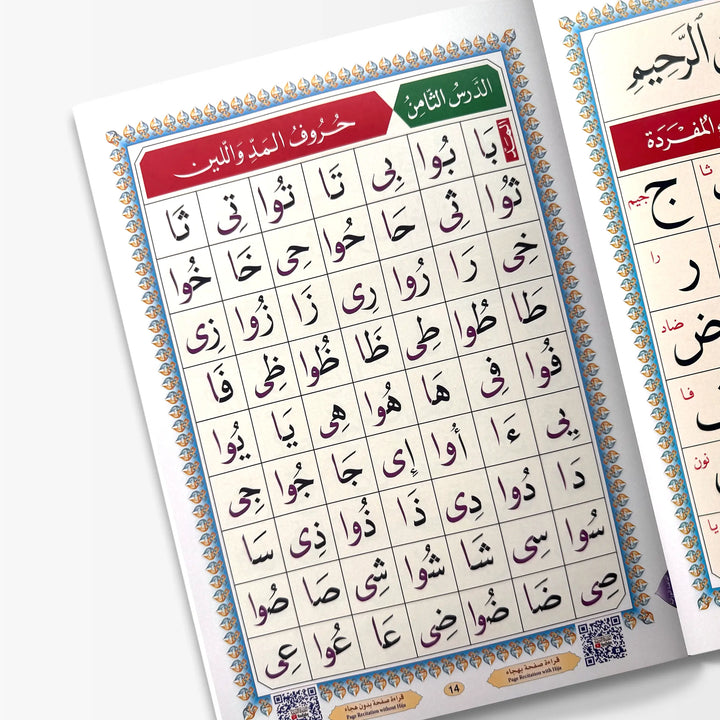 الدَّرسُ الثَّامِنُ
حُرُوفُ الْمَدِّ وَاللّين
بَا بُوا بِى تَا تُوا تِى ثَا
ثُوا ثِى حَا حُوا حِى خَا خُوا
خِى رَا رُوا رِى زَا زُوا زِى
طَا طُوا طِى ظَا ظُوا ظِى فَا
فُوا فِى هَا هُوا هِى يَا يُوا
يِى ءَا أُوا إِى جَا جُوا جِى
دَا دُوا دِى ذَا ذُوا ذِى سَا
سُوا سِى شَا شُوا شِى صَا صُوا
صِى ضَا ضُوا ضِى عَا عُوا عِى
قراءة صفحة بهجاء
Page Recitation with Hija
14
قراءة صفحة بدون هجاء
Page Recitation without Hija
الرَّحِيمِ
المُفْرَدَة
ثا
ج
جيم
را
ر
ضاد
ض
فا
نون
يا